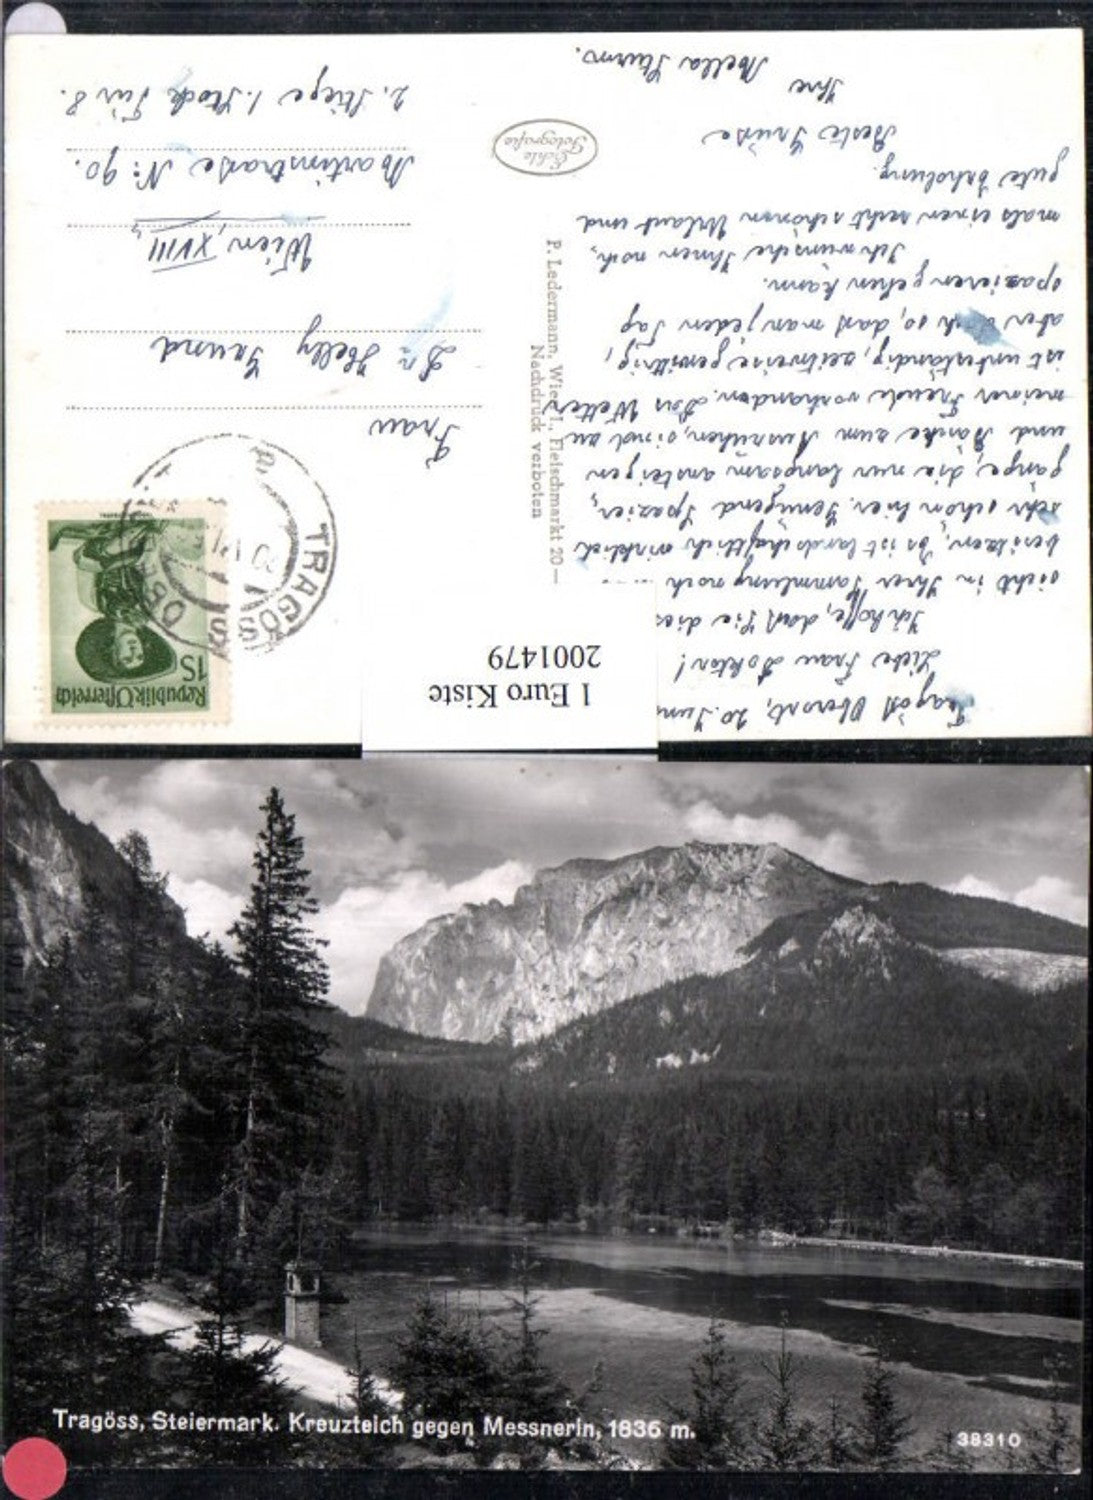 Tragöß Oberort, 20. Jun
Liebe Frau Doktor!
Ich hoffe, daß Sie dies
sicht in Ihrer Sammlung noch
besitzen. Es ist landschaftlich wirklich
sehr schön hier. Genügend Spazier-
gänge, die nur langsam ansteigen
und Bänke zum Ausruhen, sind zu
meiner Freude vorhanden. Das Wetter
ist unbeständig, zeitweise gewittrig,
aber doch so, daß man jeden Tag
spazieren gehen kann.
Ich wünsche Ihnen noch-
mals einen recht schönen Urlaub und
gute Erholung.
Beste Grüße
Ihre
Mella Sturm.
Echte
Fotografie
P. Ledermann, Wien I., Fleischmarkt 20—
Nachdruck verboten
1 Euro Kiste
2001479
Republik Österreich
1S
TRAGÖSS
20. VI
Frau
Dr. Helly
Wien, XVIII,
Martinstraße No 90.
2. Stiege 1. Stock Tür 8.
Tragöss, Steiermark. Kreuzteich gegen Messnerin, 1836 m.
38310